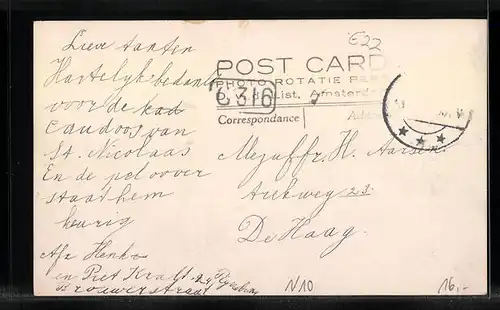 Lieve tanten
Hartelijk bedankt
voor de kad
Eaudoos van
St. Nicolaas
En de pelover
staat hem
keurig
Afz Henk
en Piet Kralt
Brouwerstraat
E22
POST CARD
PHOTO-ROTATIE
List, Amsterdam
6316
Correspondance
Mejuffr. H. Aarsen.
weg 23
De Haag.
N10
16,-